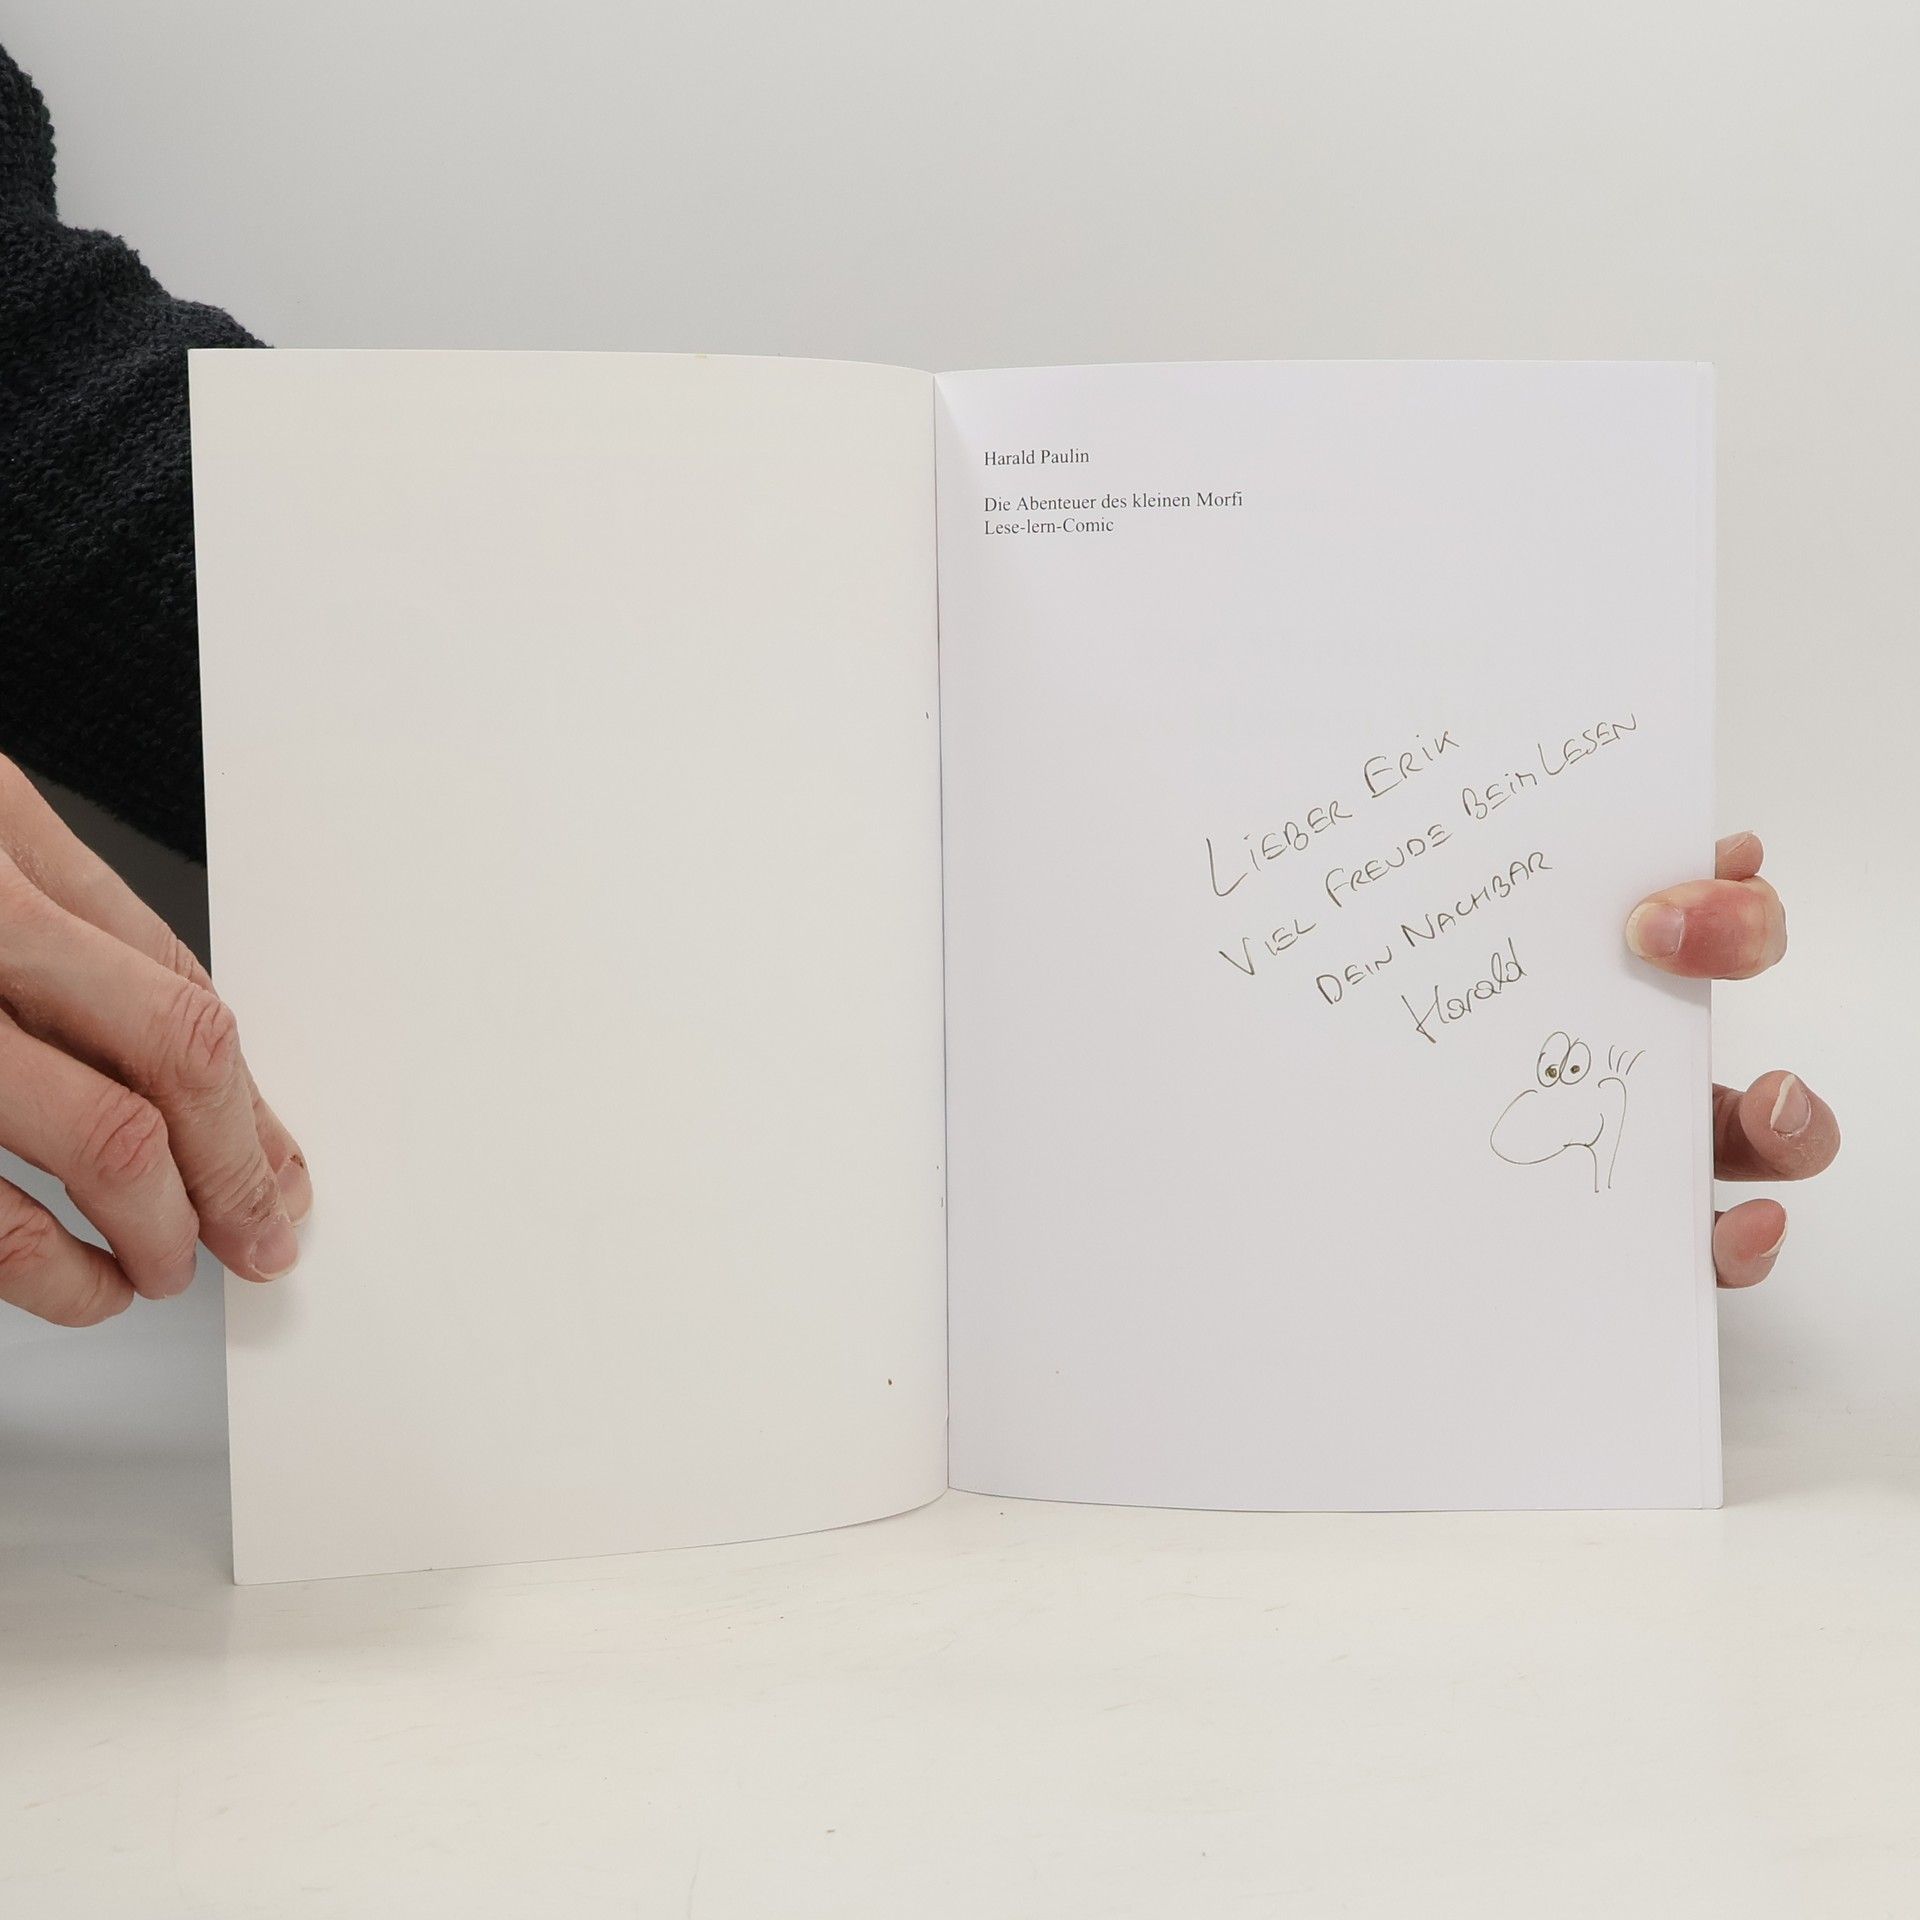 Harald Paulin
Die Abenteuer des kleinen Morfi
Lese-lern-Comic
LiEBER ERiK
ViEL FREUDE BEiM LESEN
DEiN NACHBAR
Harald